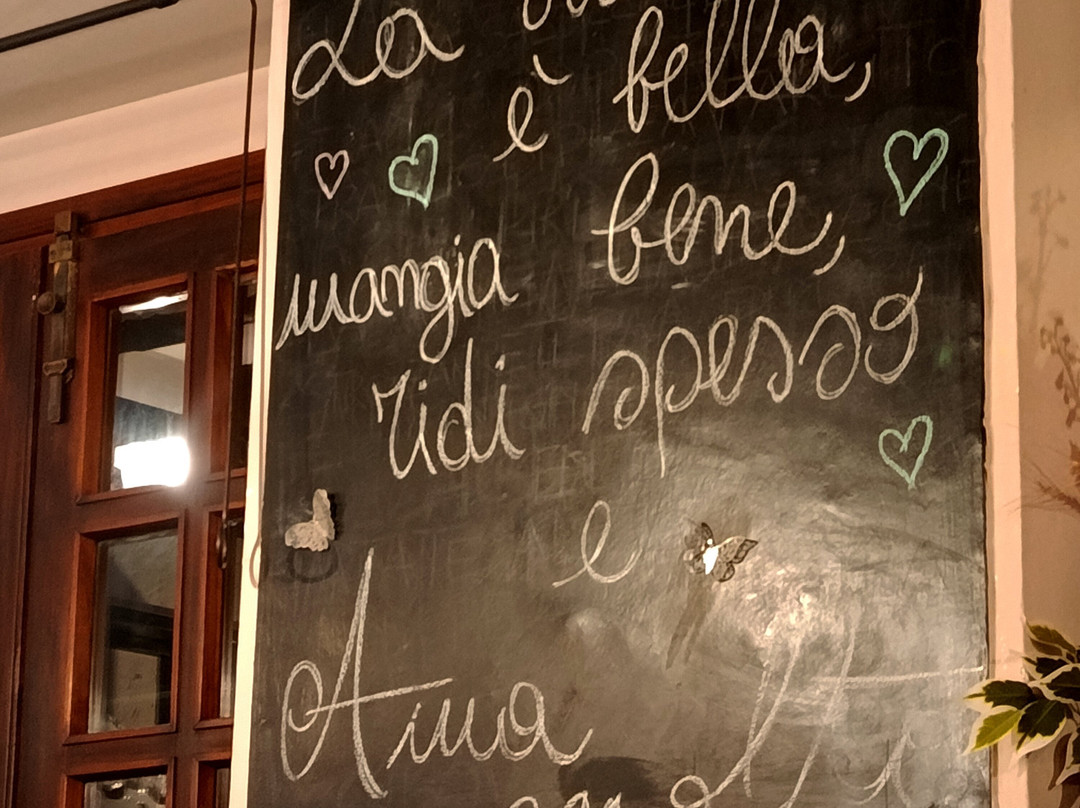 La
è bella,
mangia bene,
ridi spesso
e
Ama